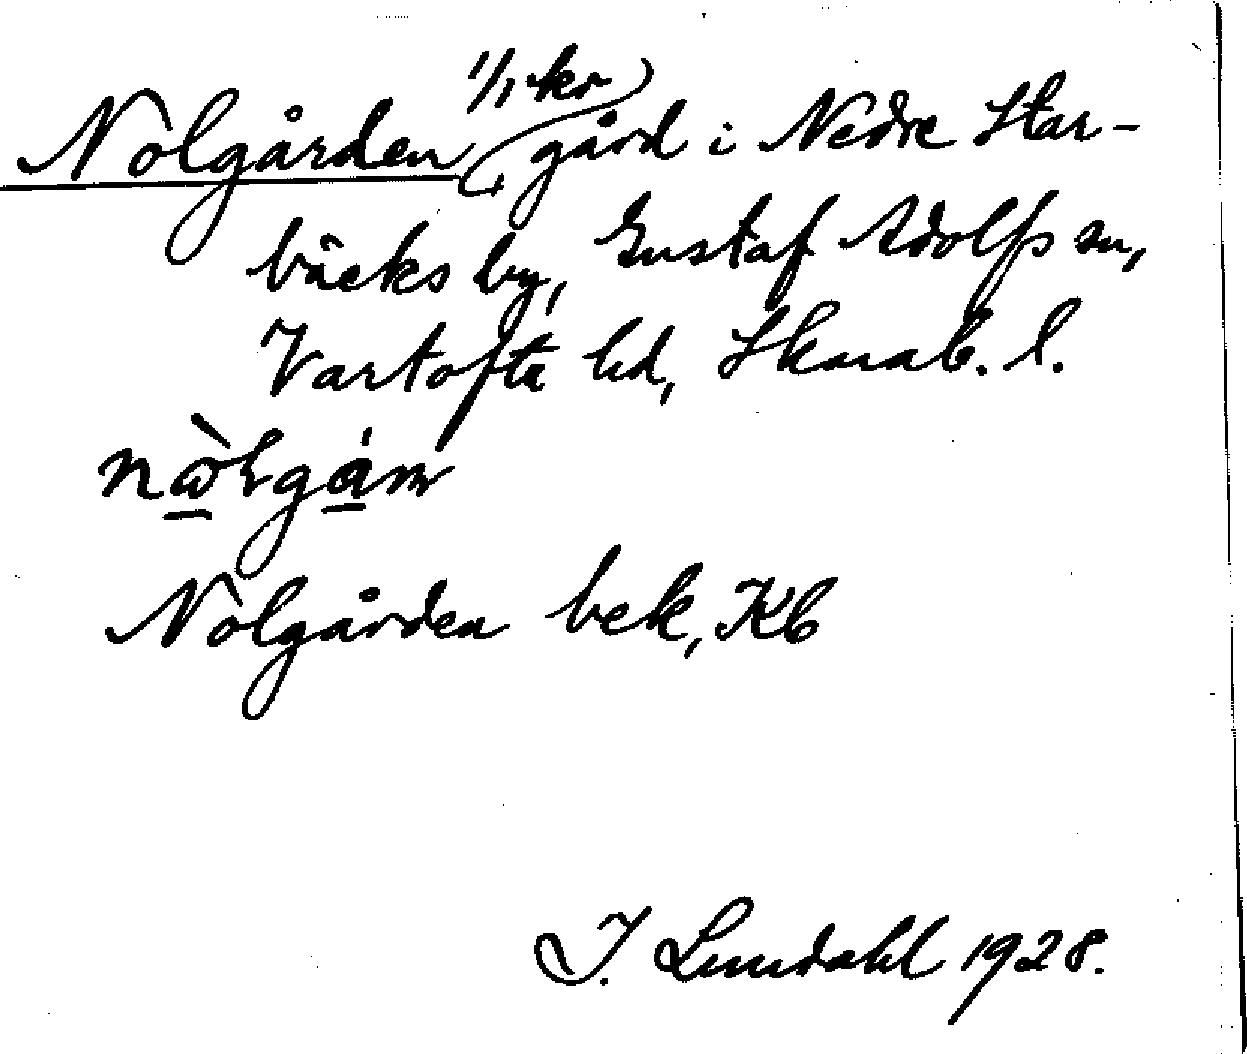 Nolgården 1/1 kr gård i Nedre Star-
bäcks by, Gustaf Adolfs sn,
Vartofta hd, Skarab. l.
Nolgården bek, Kb
I. Lundahl 1928.